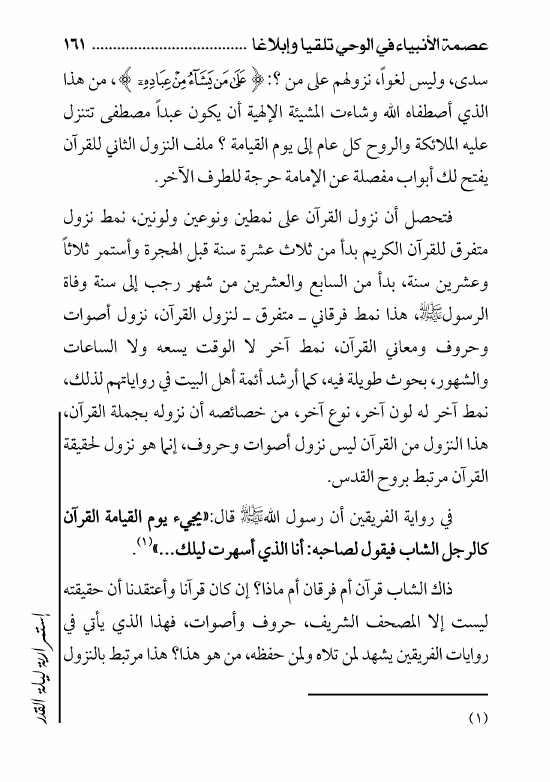 عصمة الأنبياء في الوحي تلقيا وإبلاغا ..................................... ١٦١
سدى، وليس لغواً، نزولهم على من ؟: ﴿ عَلَىٰ مَن يَشَآءُ مِنْ عِبَادِهِۦ ﴾، من هذا
الذي أصطفاه الله وشاءت المشيئة الإلهية أن يكون عبداً مصطفى تتنزل
عليه الملائكة والروح كل عام إلى يوم القيامة ؟ ملف النزول الثاني للقرآن
يفتح لك أبواب مفصلة عن الإمامة حرجة للطرف الآخر.
فتحصل أن نزول القرآن على نمطين ونوعين ولونين، نمط نزول
متفرق للقرآن الكريم بدأ من ثلاث عشرة سنة قبل الهجرة وأستمر ثلاثاً
وعشرين سنة، بدأ من السابع والعشرين من شهر رجب إلى سنة وفاة
الرسول ﷺ، هذا نمط فرقاني ـ متفرق ـ لنزول القرآن، نزول أصوات
وحروف ومعاني القرآن، نمط آخر لا الوقت يسعه ولا الساعات
والشهور، بحوث طويلة فيه، كما أرشد أئمة أهل البيت في رواياتهم لذلك،
نمط آخر له لون آخر، نوع آخر، من خصائصه أن نزوله بجملة القرآن،
هذا النزول من القرآن ليس نزول أصوات وحروف، إنما هو نزول لحقيقة
القرآن مرتبط بروح القدس.
في رواية الفريقين أن رسول الله ﷺ قال: «يجيء يوم القيامة القرآن
كالرجل الشاب فيقول لصاحبه: أنا الذي أسهرت ليلك...»(١).
ذاك الشاب قرآن أم فرقان أم ماذا؟ إن كان قرآنا وأعتقدنا أن حقيقته
ليست إلا المصحف الشريف، حروف وأصوات، فهذا الذي يأتي في
روايات الفريقين يشهد لمن تلاه ولمن حفظه، من هو هذا؟ هذا مرتبط بالنزول
إستمرارية ليلة القدر
(١)